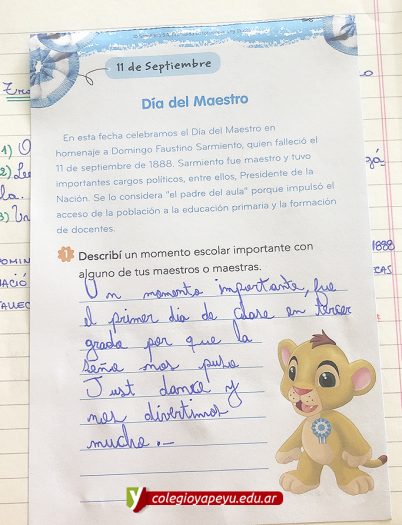 11 de Septiembre
Día del Maestro
En esta fecha celebramos el Día del Maestro en
homenaje a Domingo Faustino Sarmiento, quien falleció el
11 de septiembre de 1888. Sarmiento fue maestro y tuvo
importantes cargos políticos, entre ellos, Presidente de la
Nación. Se lo considera "el padre del aula" porque impulsó el
acceso de la población a la educación primaria y la formación
de docentes.
1 Describí un momento escolar importante con
alguno de tus maestros o maestras.
Un momento importante, fue
el primer dia de clase en tercer
grado por que la
seño nos puso
Just dance y
nos divertimos
mucho.-
1)
2)
3)
1888
colegioyapeyu.edu.ar